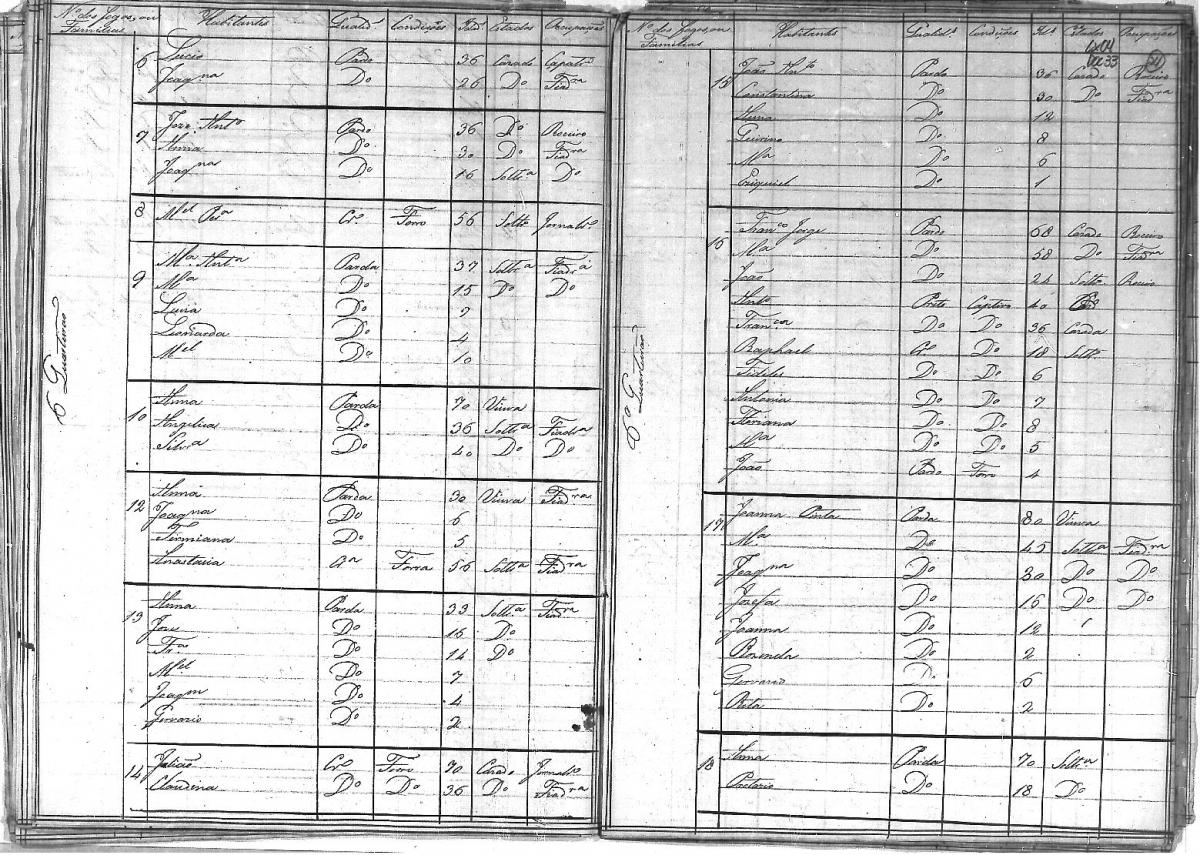 Nos dos Fogos, ou Familias Habitantes Qualide Condições Ides Estados Ocupações
6º Quarteirão
6 Lucio Pardo 36 Casado
Joaqna Do 26 Do Fiadra
7 Joze Anto Pardo 36 Do Roceiro
Anna Do 30 Do Fiadra
Joaqna Do 16 Soltra Do
8 Mel Pra Cro Forro 56 Solto Jornalo
9 Ma Anta Parda 37 Solta Fiadra
Ma Do 15 Do Do
Luiza Do 7
Leonarda Do 4
Mel Do 10
10 Anna Parda 70 Viuva
Angelica Do 36 Solta Fiadra
Silva Do 40 Do Do
12 Anna Parda 30 Viuva Fiadra
Joaqna Do 6
Firmiana Do 5
Anastacia Ca Forra 56 Solta Fiadra
13 Anna Parda 33 Solta Fiadra
Joze Do 16 Do
Fro Do 14 Do
Mel Do 7
Joaqm Do 4
Gervazio Do 2
14 Felicio Cro Forro 70 Casado Jornalo
Claudina Do Do 36 Do Fiadra
Nos dos Fogos, ou Familias Habitantes Qualide Condições Ids Estados Ocupações
6º Quarteirão
15 João Anto Pardo 36 Casado Roceiro
Constantina Do 30 Do Fiadra
Anna Do 12
Do 8
Ma Do 6
Eziquiel Do 1
16 Franco Jorge Pardo 68 Casado Roceiro
Ma Do 58 Do Fiadra
João Do 24 Solto Roceiro
Anto Preto Captivo 40 Co
Franca Do Do 36 Casada
Raphael Co Do 18 Solto
Fidelis Do Do 6
Antonia Do Do 7
Floriana Do Do 8
Ma Do Do 5
João Pardo Forro 4
17 Joanna Pinta Parda 80 Viuva
Ma Do 45 Solta Fiadra
Joaqna Do 30 Do Do
Jozefa Do 16 Do Do
Joanna Do 12
Rozenda Do 2
Gervazio Do 6
Rita Do 2
18 Anna Parda 70 Solta
Do 18 Do